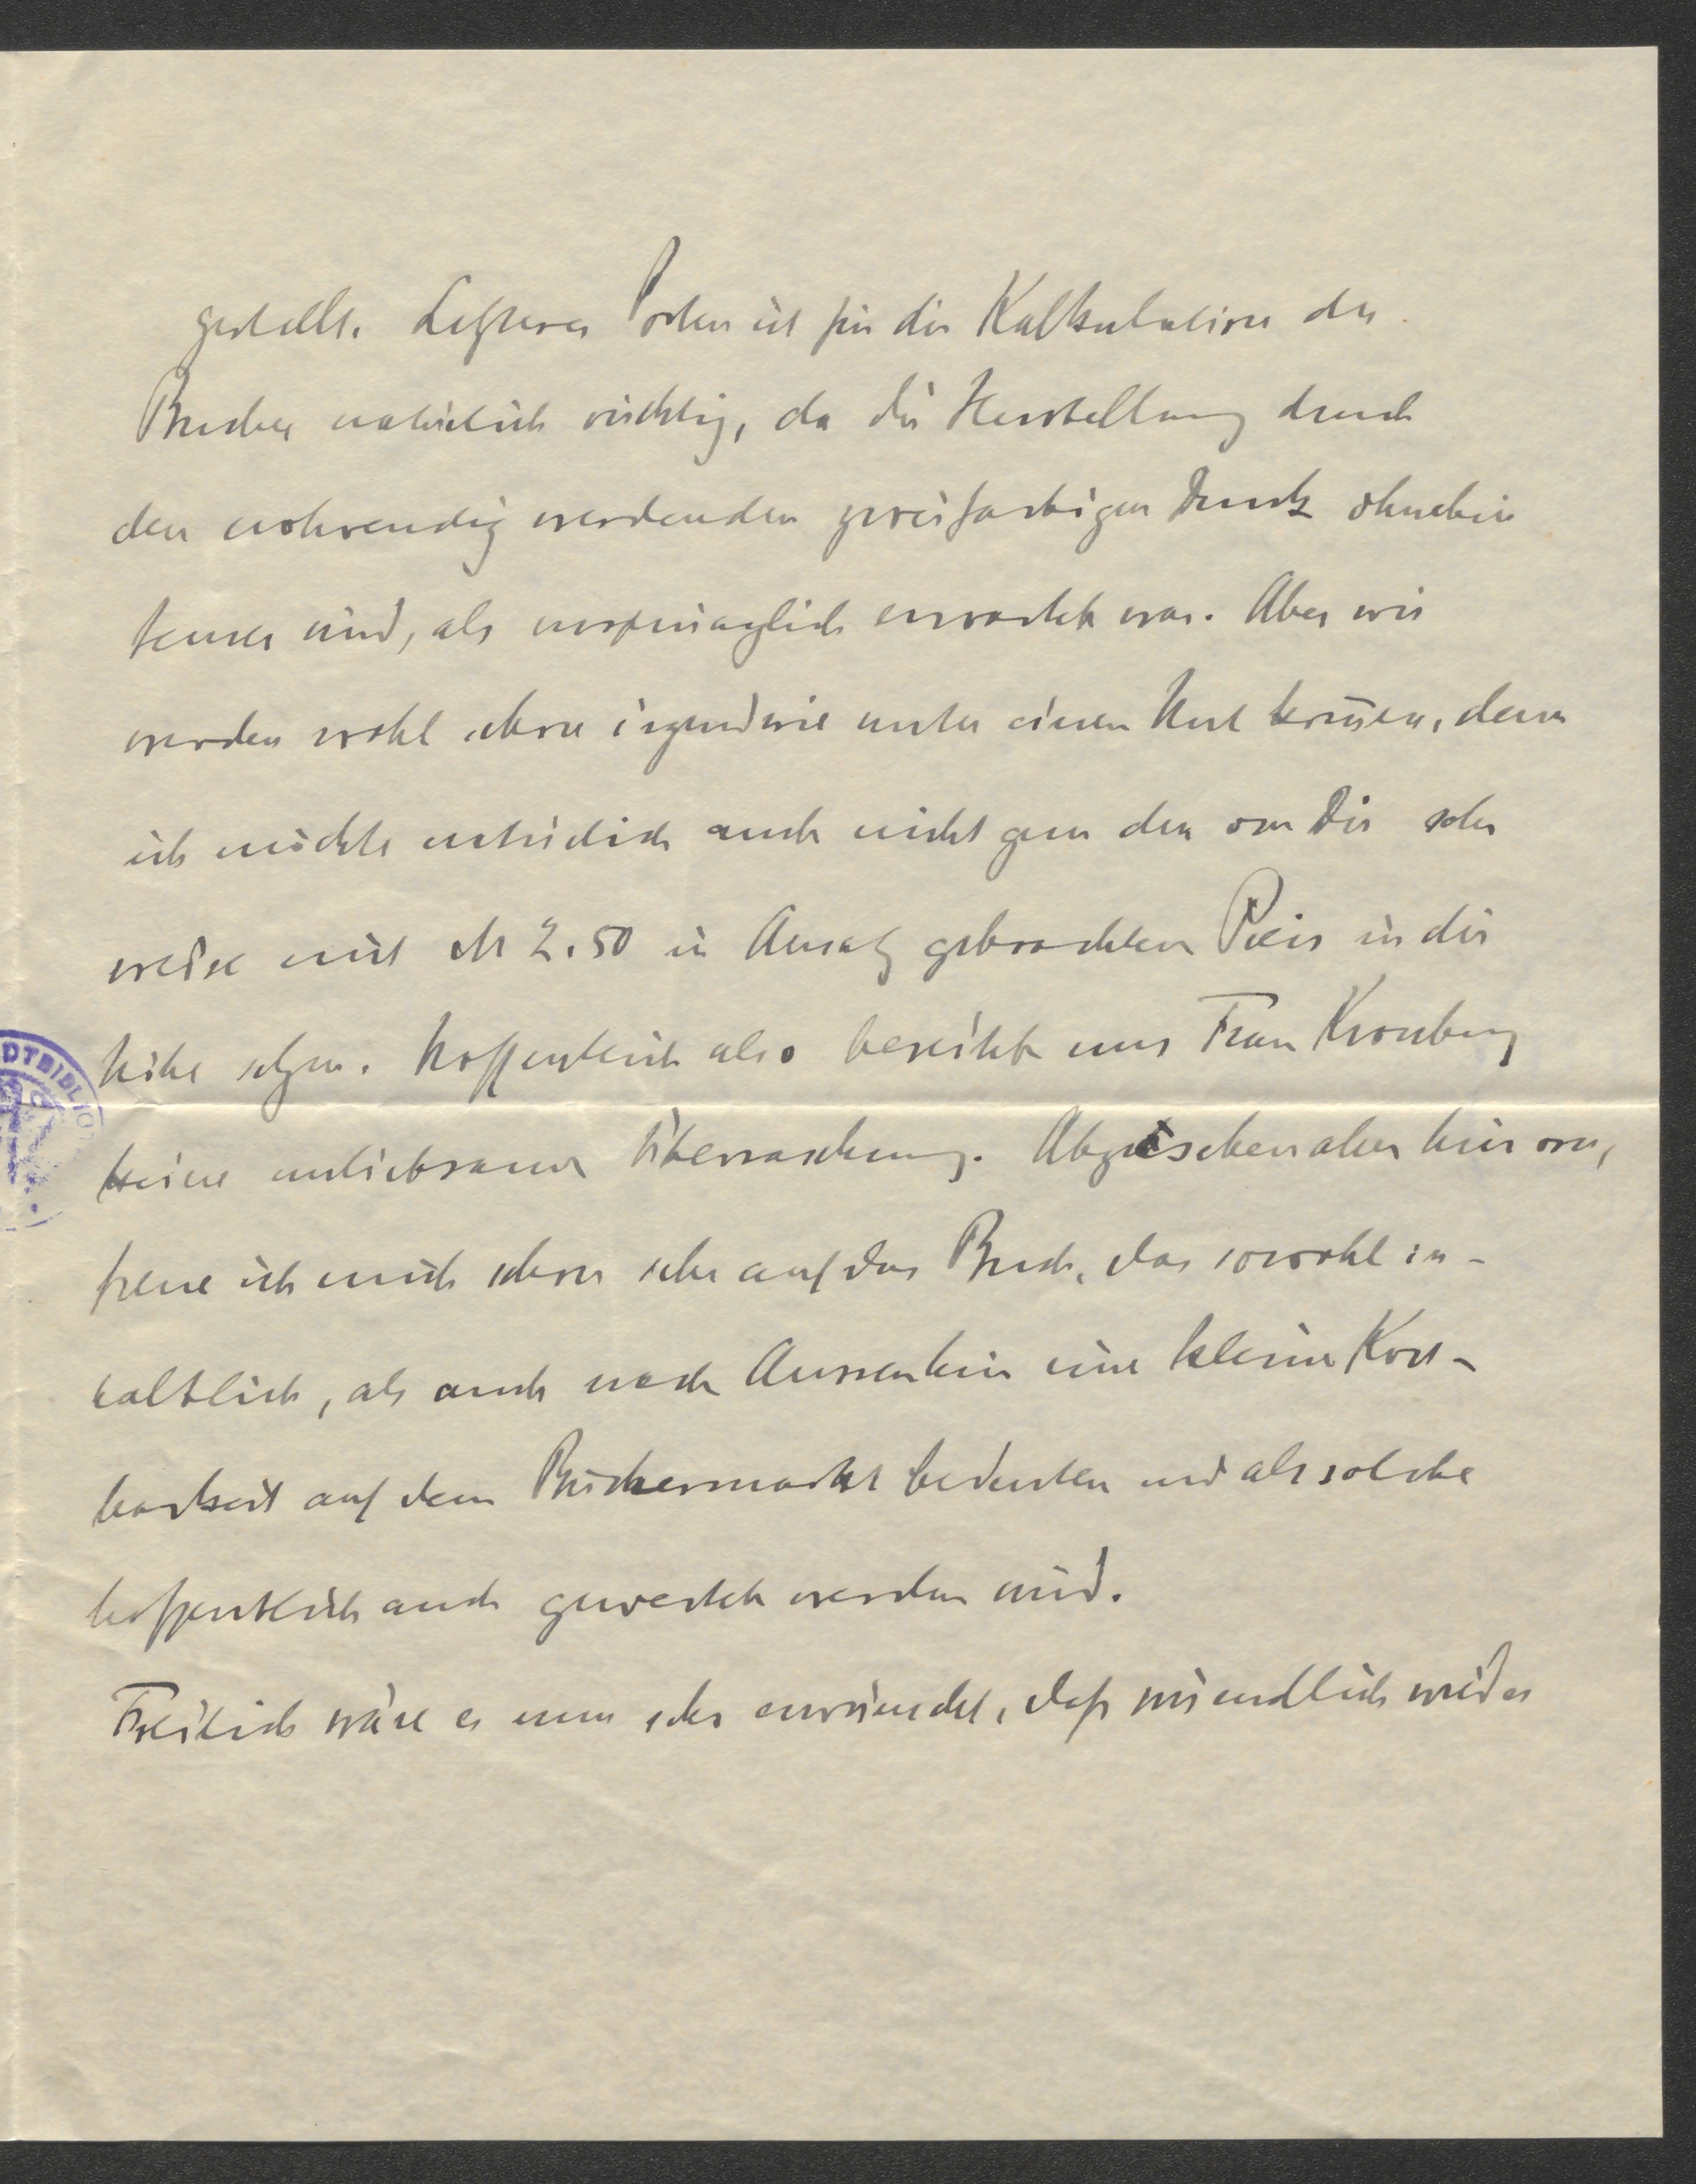 gestellt. Letzterer Posten ist für die Kalkulation des
Buches natürlich wichtig, da die Herstellung durch
den notwendig werdenden zweifarbigen Druck ohnehin
teurer wird, als ursprünglich erwartet war. Aber wir
werden wohl schon irgendwie unter einen Hut kommen, denn
ich möchte natürlich auch nicht gern den von Dir sehr
weise mit M 2.50 in Ansatz gebrachten Preis in die
Höhe setzen. Hoffentlich also bereitet uns Frau Kronberg
keine unliebsame Überraschung. Abgesehen aber hiervon,
freue ich mich schon sehr auf das Buch, das sowohl in-
haltlich, als auch nach Aussenhin eine kleine Kost-
barkeit auf dem Büchermarkt bedeuten und als solche
hoffentlich auch gewertet werden wird.
Freilich wäre es nun sehr erwünscht, daß wir endlich wieder
DTBIBLIO